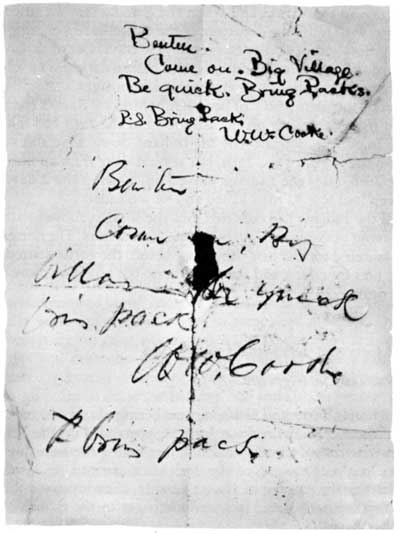 Benteen.
Come on. Big Village.
Be quick. Bring Packs.
P.S. Bring Pack.
W.W. Cooke.
Benteen
Come on, Big
village be quick
bring packs
W.W. Cooke
P bring pacs.